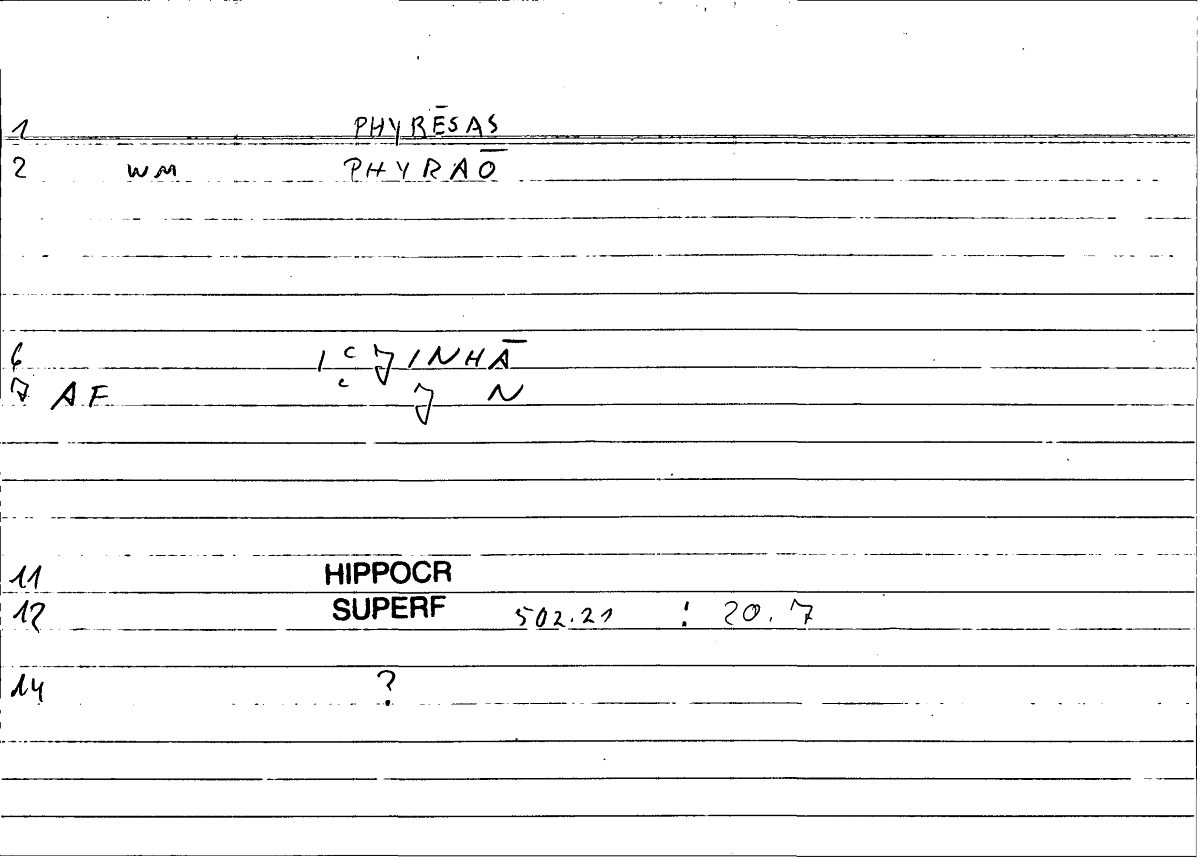 1 PHYRĒSAS
2 WM PHYRAŌ
6 INHĀ
7 AF N
11 HIPPOCR
12 SUPERF 502.21 : 20.7
14 ?